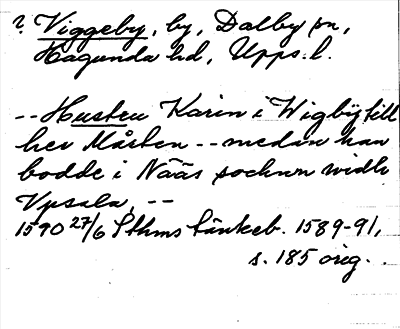 ? Viggeby, by, Dalby sn,
Hagunda hd, Upps. l.
-- Hustru Karin i Wigbÿ till
her Mårten -- medan han
bodde i Nääs sochnn widh
Vpsala, --
1590 27/6 Sthms tänkeb. 1589-91,
s. 185 orig.